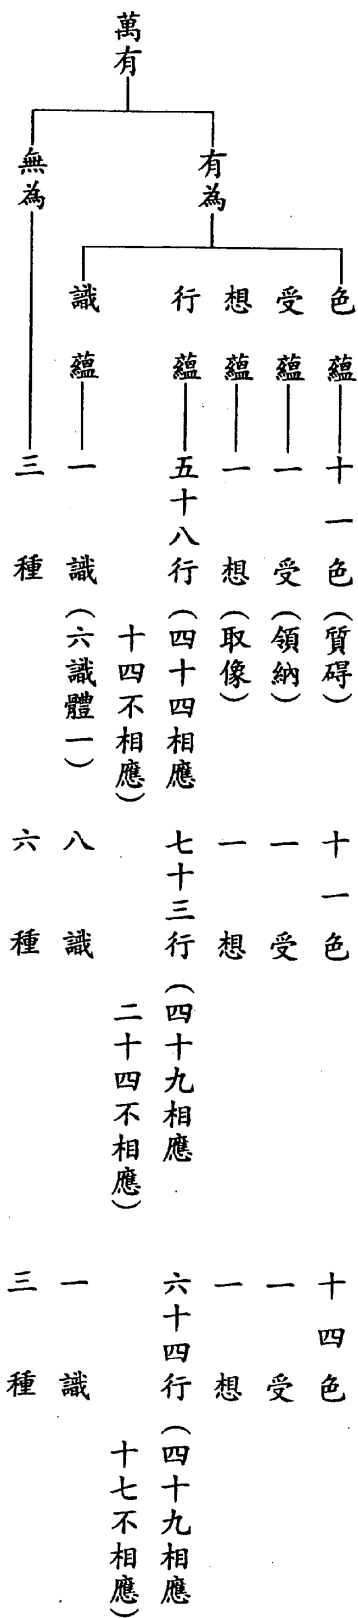 萬有
有為
無為
色蘊 十一色（質碍） 十一色 十四色
受蘊 一受（領納） 一受 一受
想蘊 一想（取像） 一想 一想
行蘊 五十八行（四十四相應 七十三行（四十九相應 六十四行（四十九相應
十四不相應） 二十四不相應） 十七不相應）
識蘊 一識（六識體一） 八識 一識
三種 六種 三種